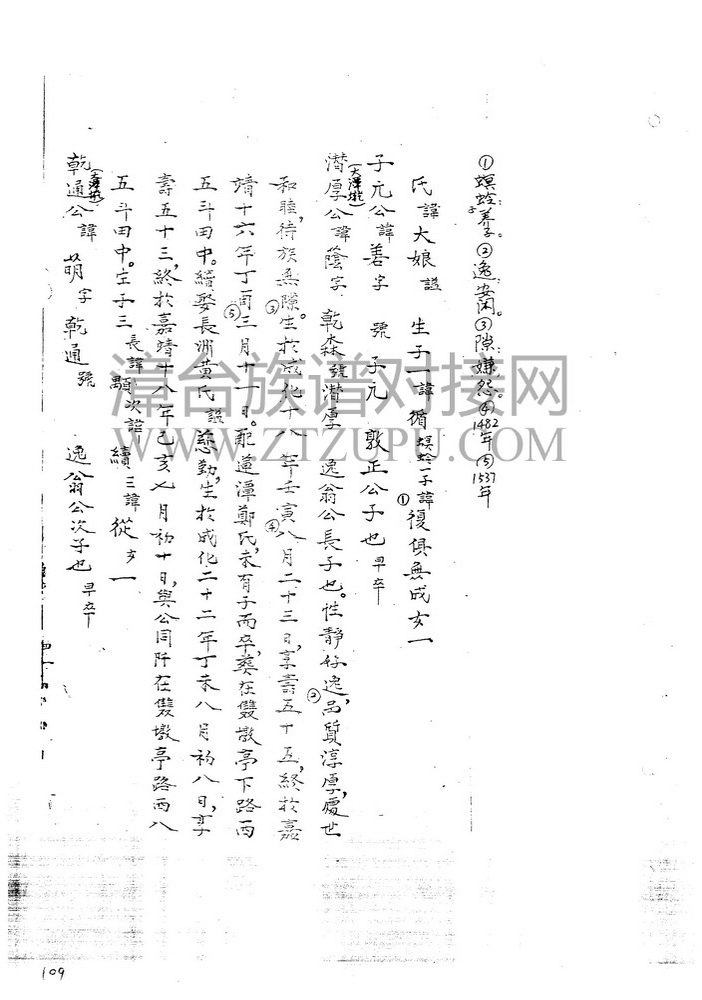 ①螟蛉:養子。②逸:安闲。③隙:嫌怨。④1482年⑤1537年
氏諱大娘謚 生子一諱循螟蛉①一子諱復俱無成女一
子元公諱善字 號子元 敦正公子也早卒
潛厚公諱蔭字 乾森號潛厚 逸翁公長子也。性靜好逸②,品質淳厚,處世
和睦,待族無隙③。生於成化十八年壬寅④八月二十三日,享壽五十五,終於嘉
靖十六年丁酉⑤三月十一日。配蓮潭鄭氏,未有子而卒,葬在雙墩亭下路西
五斗田中。續娶長洲黃氏謚慈勤,生於成化二十二年丁未八月初八日,享
壽五十三,終於嘉靖十八年己亥七月初十日,與公同阡在雙墩亭路西八
五斗田中。生子三長諱顒次諱續三諱從女一
乾通公諱萌字乾通號 逸翁公次子也早卒
漳台族谱对接网
WWW.ZTZUPU.COM
109